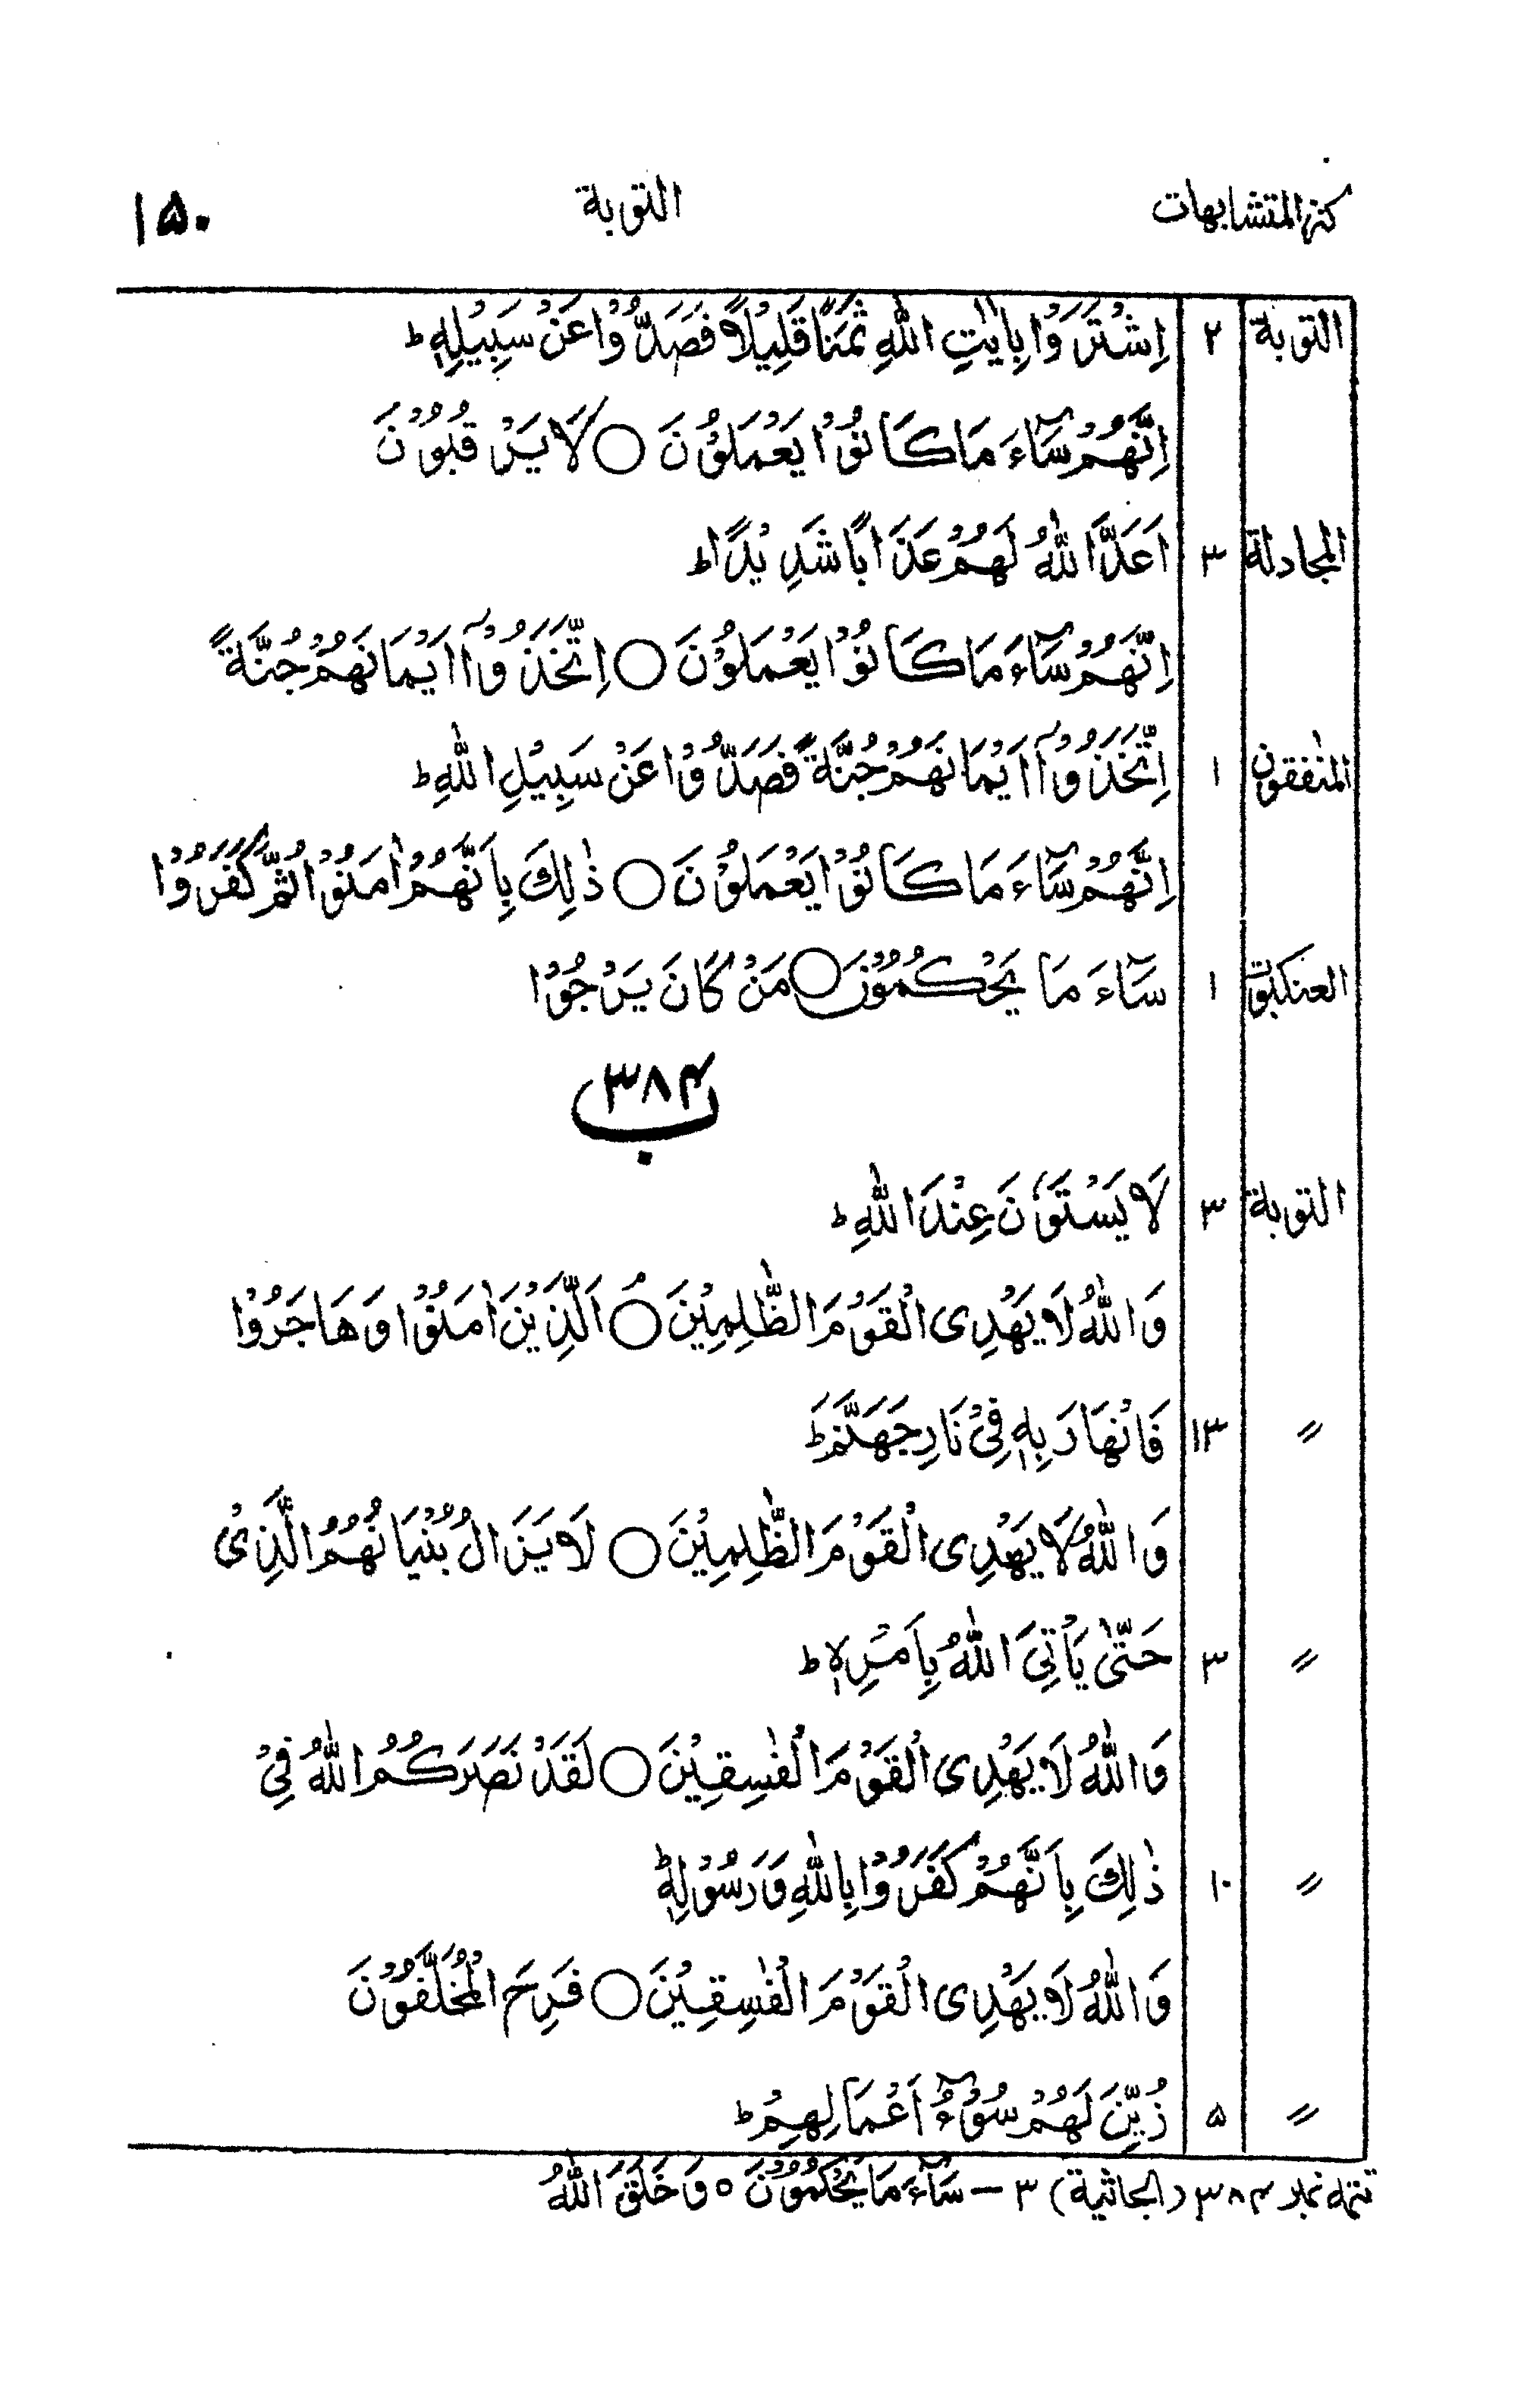 كنز المتشابهات التوبة ۱۵۰
التوبة ۲ اِشْتَرَوْا بِاٰيٰتِ اللّٰهِ ثَمَنًا قَلِيْلًا فَصَدُّوْا عَنْ سَبِيْلِهٖ ؕ
اِنَّهُمْ سَآءَ مَا كَانُوْا يَعْمَلُوْنَ ○ لَا يَرْقُبُوْنَ
المجادلة ۳ اَعَدَّ اللّٰهُ لَهُمْ عَذَابًا شَدِيْدًا ؕ
اِنَّهُمْ سَآءَ مَا كَانُوْا يَعْمَلُوْنَ ○ اِتَّخَذُوْۤا اَيْمَانَهُمْ جُنَّةً
المنٰفقون ۱ اِتَّخَذُوْۤا اَيْمَانَهُمْ جُنَّةً فَصَدُّوْا عَنْ سَبِيْلِ اللّٰهِ ؕ
اِنَّهُمْ سَآءَ مَا كَانُوْا يَعْمَلُوْنَ ○ ذٰلِكَ بِاَنَّهُمْ اٰمَنُوْا ثُمَّ كَفَرُوْا
العنكبوت ۱ سَآءَ مَا يَحْكُمُوْنَ ○ مَنْ كَانَ يَرْجُوْا
۳۸۴
ب
التوبة ۳ لَا يَسْتَوٗنَ عِنْدَ اللّٰهِ ؕ
وَ اللّٰهُ لَا يَهْدِى الْقَوْمَ الظّٰلِمِيْنَ ○ اَلَّذِيْنَ اٰمَنُوْا وَ هَاجَرُوْا
〃 ۱۳ فَانْهَارَ بِهٖ فِىْ نَارِ جَهَنَّمَ ؕ
وَ اللّٰهُ لَا يَهْدِى الْقَوْمَ الظّٰلِمِيْنَ ○ لَا يَزَالُ بُنْيَانُهُمُ الَّذِىْ
〃 ۳ حَتّٰى يَاْتِىَ اللّٰهُ بِاَمْرِهٖ ؕ
وَ اللّٰهُ لَا يَهْدِى الْقَوْمَ الْفٰسِقِيْنَ ○ لَقَدْ نَصَرَكُمُ اللّٰهُ فِىْ
〃 ۱۰ ذٰلِكَ بِاَنَّهُمْ كَفَرُوْا بِاللّٰهِ وَ رَسُوْلِهٖ ؕ
وَ اللّٰهُ لَا يَهْدِى الْقَوْمَ الْفٰسِقِيْنَ ○ فَرِحَ الْمُخَلَّفُوْنَ
〃 ۵ زُيِّنَ لَهُمْ سُوْٓءُ اَعْمَالِهِمْ ؕ
تتمہ نمبر ۳۸۳ (الجاثية) ۳ – سَآءَ مَا يَحْكُمُوْنَ ○ وَ خَلَقَ اللّٰهُ